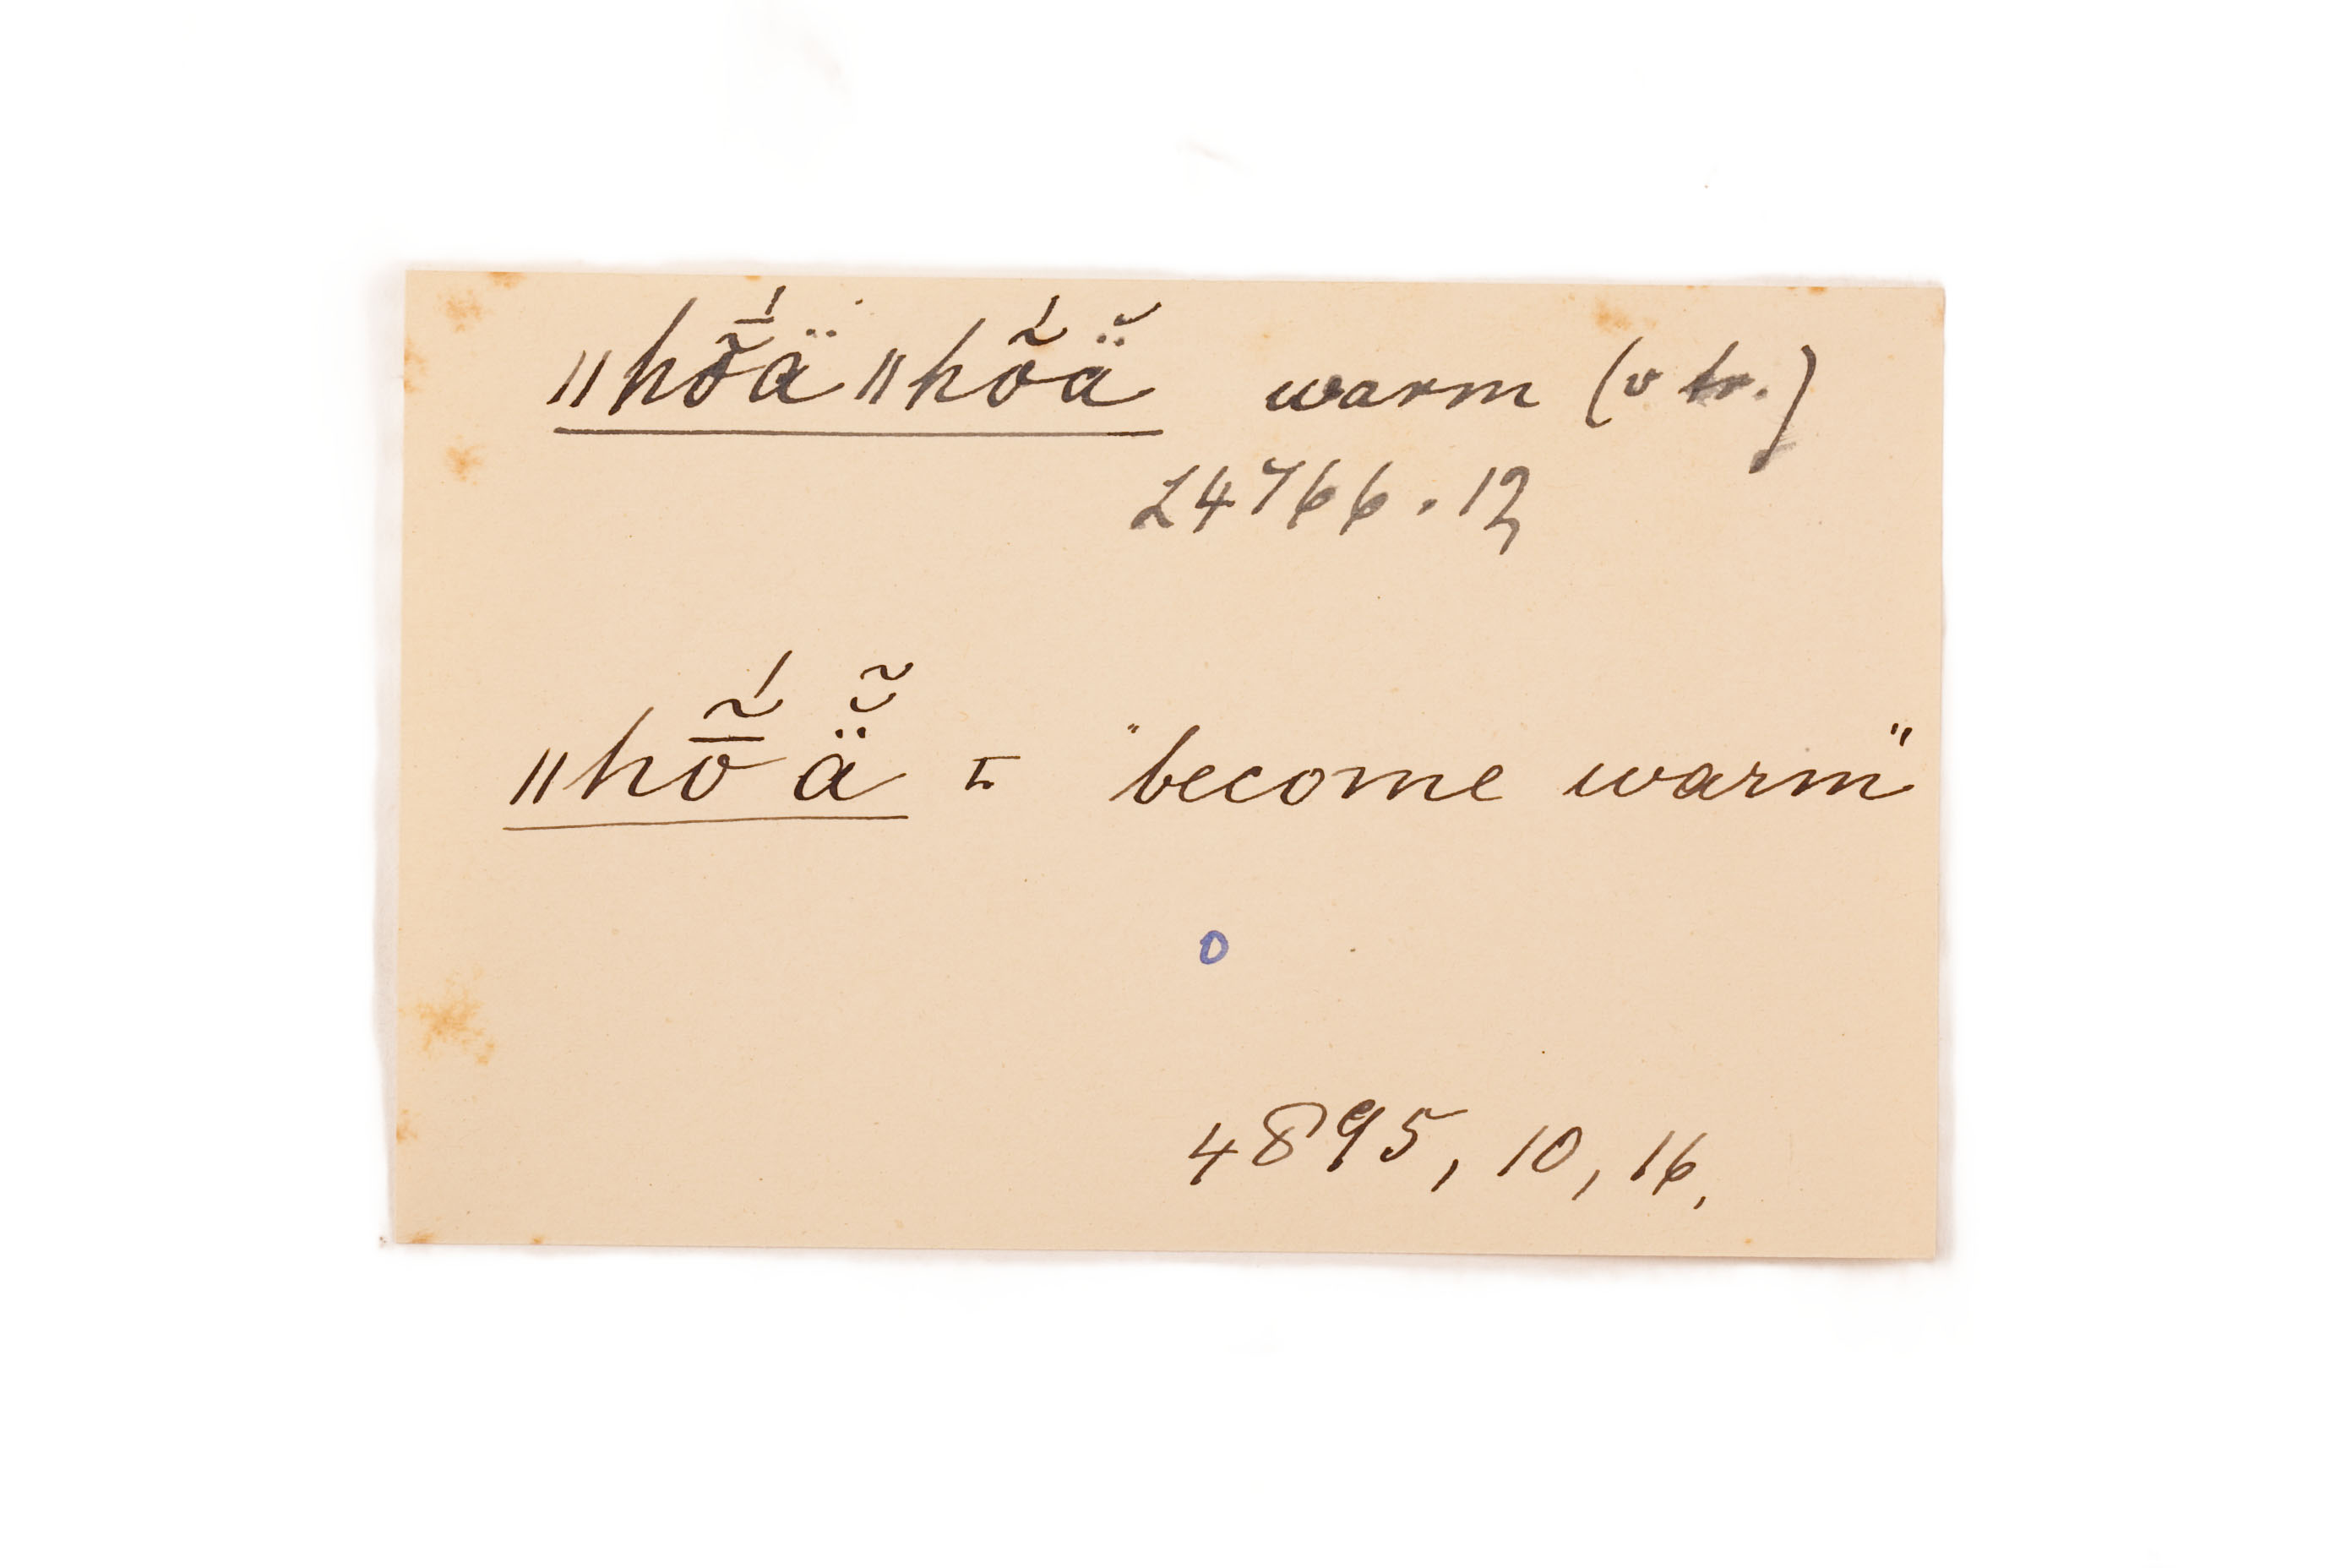 ǁhō̃́ä ǁhṍä̆ warm (v tr.)
L4766.12
ǁhō̃́ä̆̃ = "become warm"
o
4895, 10, 16,